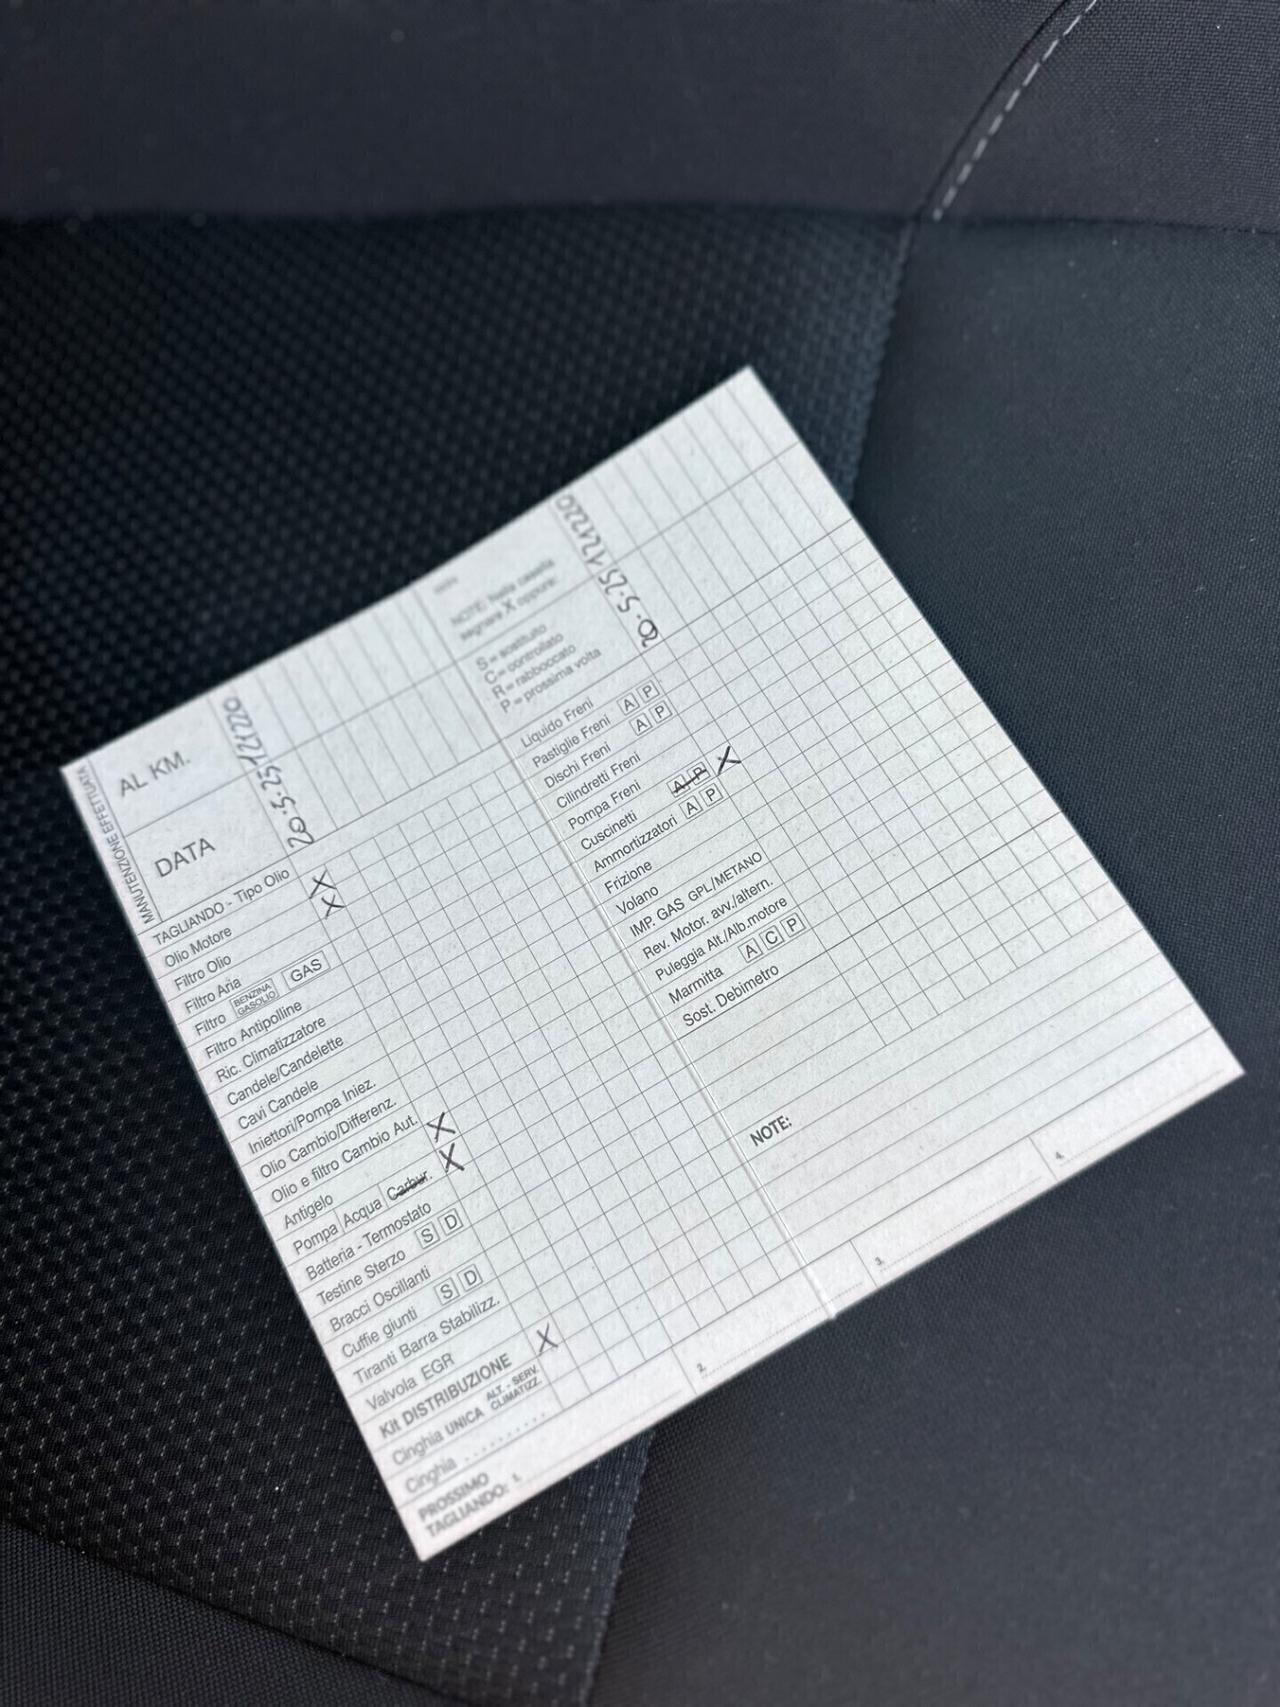 MANUTENZIONE EFFETTUATA
AL KM.
121220
DATA
20.5.25
TAGLIANDO - Tipo Olio
Olio Motore X
Filtro Olio X
Filtro Aria
Filtro BENZINA GASOLIO GAS
Filtro Antipolline
Ric. Climatizzatore
Candele/Candelette
Cavi Candele
Iniettori/Pompa Iniez.
Olio Cambio/Differenz.
Olio e filtro Cambio Aut.
Antigelo X
Pompa Acqua Carbur. X
Batteria - Termostato
Testine Sterzo S D
Bracci Oscillanti
Cuffie giunti S D
Tiranti Barra Stabilizz.
Valvola EGR
Kit DISTRIBUZIONE X
Cinghia UNICA ALT. - SERV. CLIMATIZZ.
Cinghia ..........
PROSSIMO
TAGLIANDO: 1.
2.
3.
4.
NOTE: Nella casella
segnare X oppure:
S = sostituito
C = controllato
R = rabboccato
P = prossima volta
121220
20.5.25
Liquido Freni
Pastiglie Freni A P
Dischi Freni A P
Cilindretti Freni
Pompa Freni
Cuscinetti A P X
Ammortizzatori A P
Frizione
Volano
IMP. GAS GPL/METANO
Rev. Motor. avv./altern.
Puleggia Alt./Alb.motore
Marmitta A C P
Sost. Debimetro
NOTE: